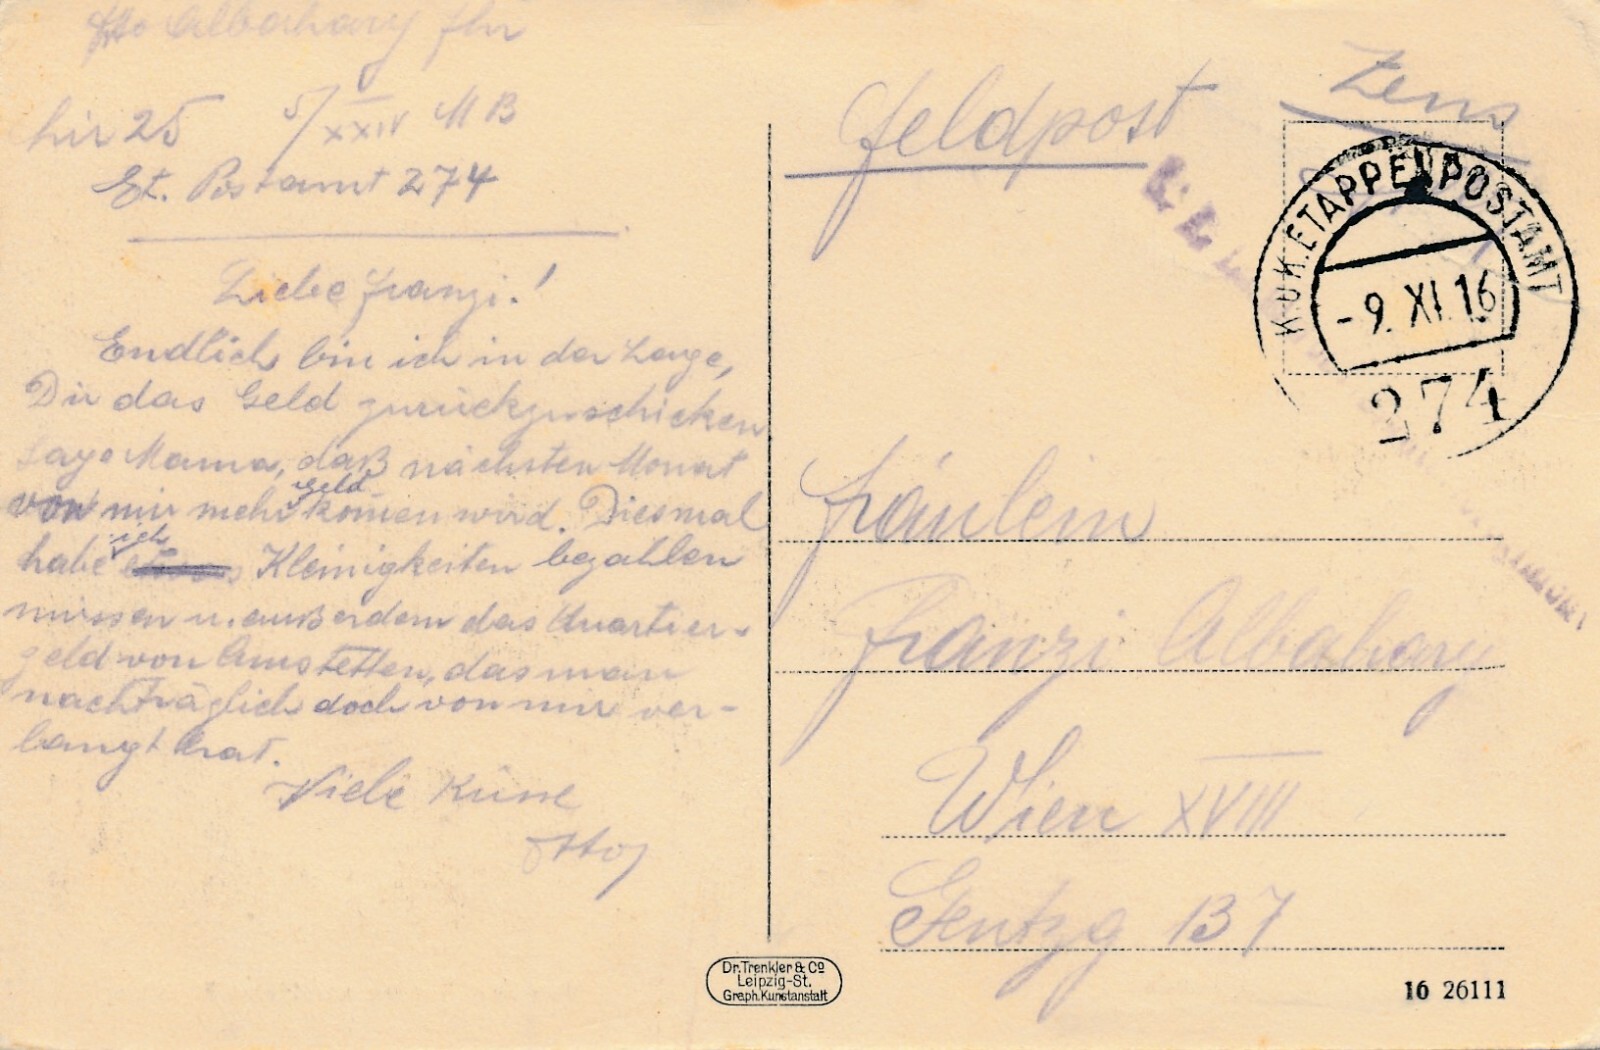 Otto Albahary Fhr
hir 25 5/XXIV MB
Et. Postamt 274
Liebe Franzi!
Endlich bin ich in der Lage,
Dir das Geld zurückzuschicken
Sage Mama, daß nächsten Monat
von mir mehr Geld komen wird. Diesmal
habe ich Kleinigkeiten bezahlen
müssen u. außerdem das Quartier-
geld von Amstetten, das man
nachträglich doch von mir ver-
langt hat.
Viele Küsse
Otto
Feldpost
Zens
K.U.K. ETAPPENPOSTAMT
-9. XI. 16
274
Fräulein
Franzi Albahary
Wien XVIII
Gentzg 137
Dr. Trenkler & Co
Leipzig-St.
Graph. Kunstanstalt
16 26111